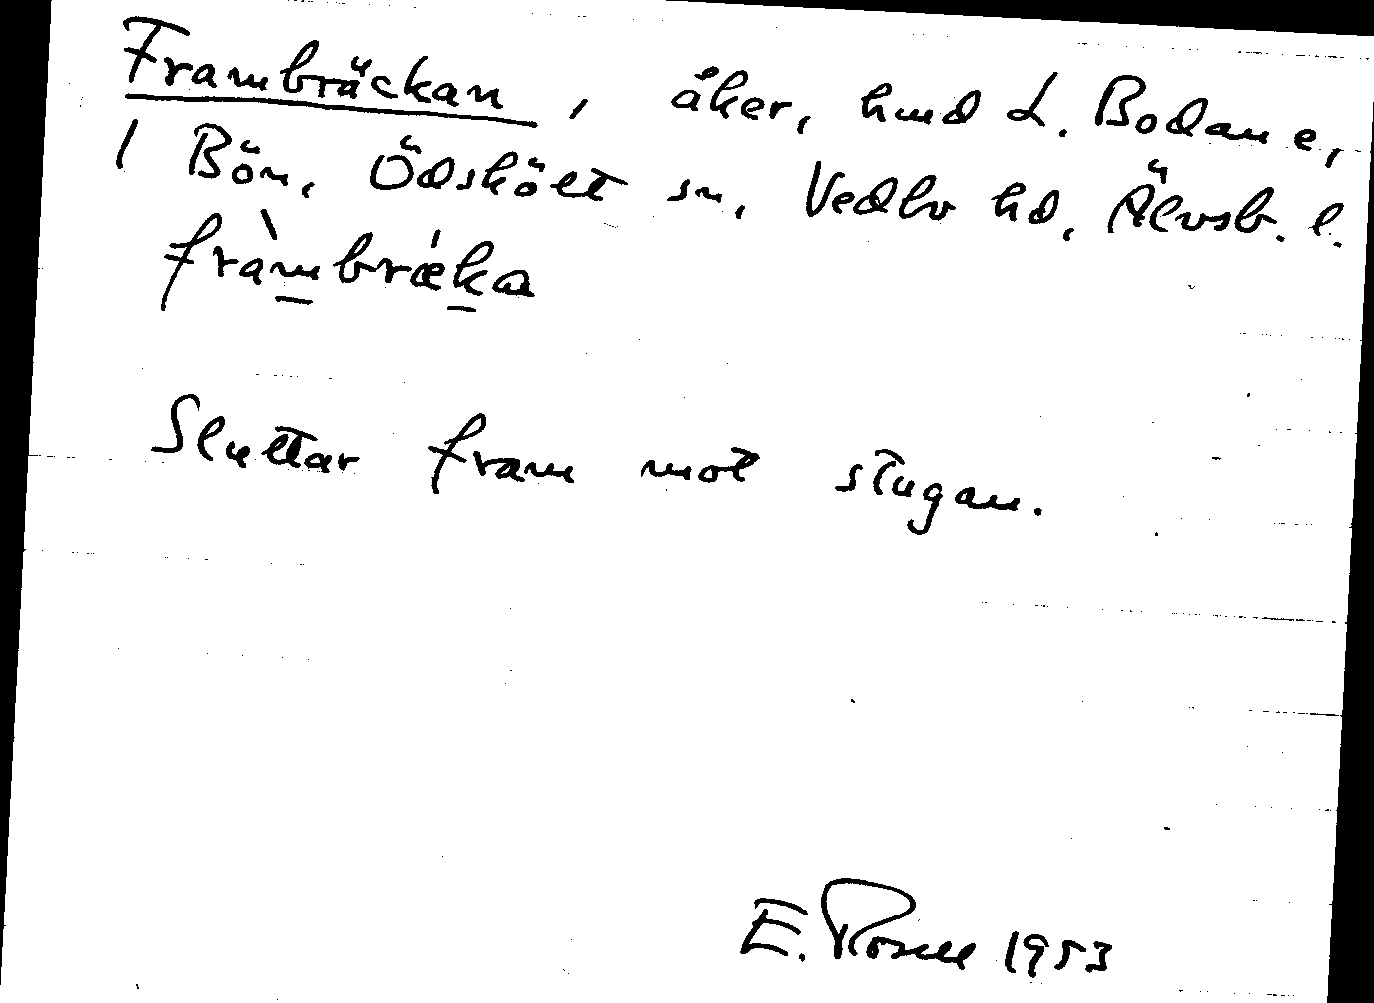 Frambräckan, åker, hmd L. Bodane,
1 Bön, Ödskölt sn, Vedbo hd, Älvsb. l.
fràmbrǽka
Sluttar fram mot stugan.
E. Rosell 1953